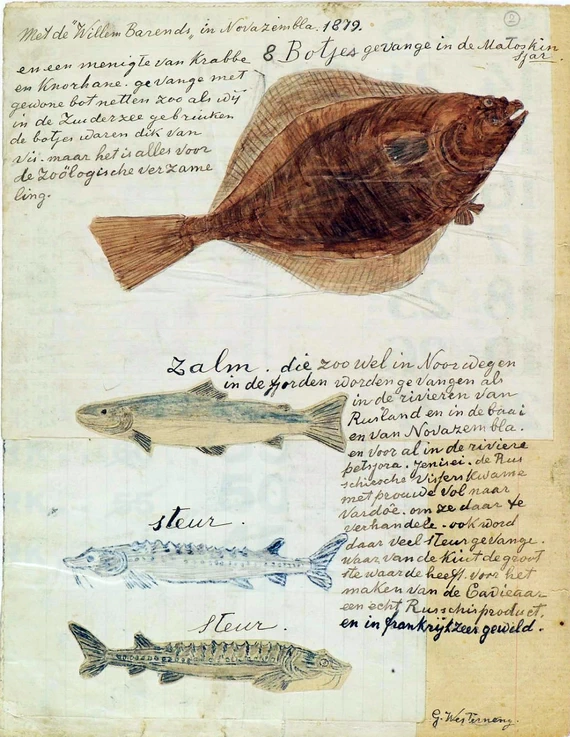 Met de "Willem Barends" in Novazembla. 1879.
2
8 Botjes gevange in de Matoskin
Sjar.
en een menigte van Krabbe
en Knorhane. gevange met
gewone bot netten zoo als wij
in de Zuiderzee gebruiken
de botjes waren dik van
vis. maar het is alles voor
de zoölogische verzame
ling.
Zalm. die zoo wel in Noorwegen
in de fjorden worden gevangen als
in de rivieren van
Rusland en in de baai
en van Novazembla.
en voor al in de riviere
petsjora. jenisei. de Rus
schiesche Vissers kwame
met prouwe vol naar
Vardoë. om ze daar te
verhandele. ook word
daar veel steur gevange.
waar van de Kuit de groot
ste waarde heeft. voor het
maken van de Cavieaar
een echt Russchisproduct.
en in frankrijk zeer gewild.
steur.
steur.
G. Westerneng.